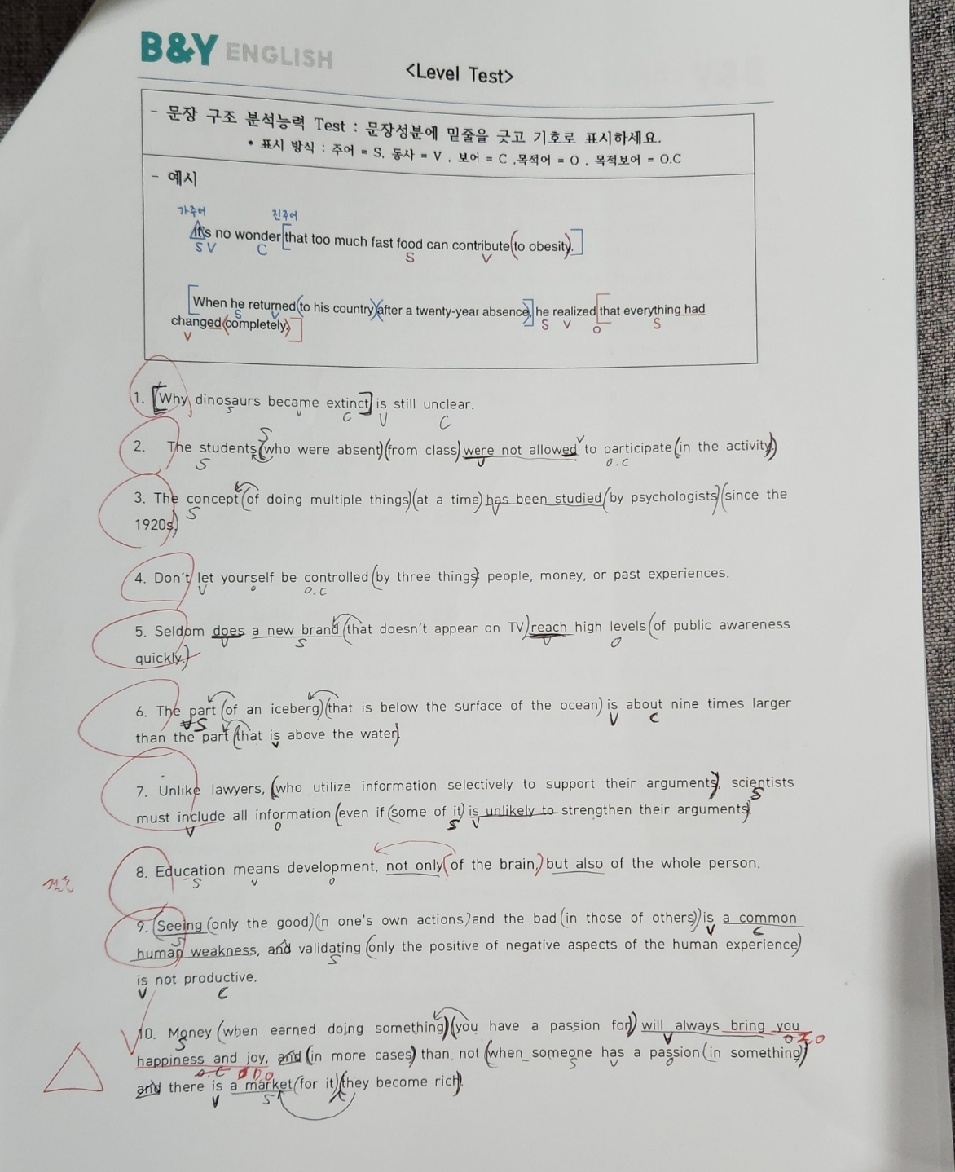 B&Y ENGLISH
<Level Test>
- 문장 구조 분석능력 Test : 문장성분에 밑줄을 긋고 기호로 표시하세요.
• 표시 방식 : 주어 = S, 동사 = V , 보어 = C ,목적어 = O , 목적보어 = O.C
- 예시
가주어 진주어
It's no wonder [that too much fast food can contribute (to obesity).]
S V C S V
[When he returned (to his country) (after a twenty-year absence,] he realized [that everything had
S V S V O S
changed (completely).]
V
1. [Why dinosaurs became extinct] is still unclear.
S V C V C
2. The students (who were absent) (from class) were not allowed to participate (in the activity)
S S V V O.C
3. The concept (of doing multiple things) (at a time) has been studied (by psychologists) (since the
S V
1920s)
4. Don't let yourself be controlled (by three things) people, money, or past experiences.
V O O.C
5. Seldom does a new brand (that doesn't appear on TV) reach high levels (of public awareness
V S V O
quickly.)
6. The part (of an iceberg) (that is below the surface of the ocean) is about nine times larger
S V C
than the part (that is above the water)
V
7. Unlike lawyers, (who utilize information selectively to support their arguments), scientists
S
must include all information (even if (some of it) is unlikely to strengthen their arguments)
V O S V
8. Education means development, not only (of the brain,) but also of the whole person.
S V O
9. (Seeing (only the good) (in one's own actions) and the bad (in those of others)) is a common
S V C
human weakness, and validating (only the positive of negative aspects of the human experience)
S
is not productive.
V C
10. Money (when earned doing something) (you have a passion for) will always bring you
S V
happiness and joy, and (in more cases) than not (when someone has a passion (in something)
S V O
and there is a market (for it) (they become rich).
V S